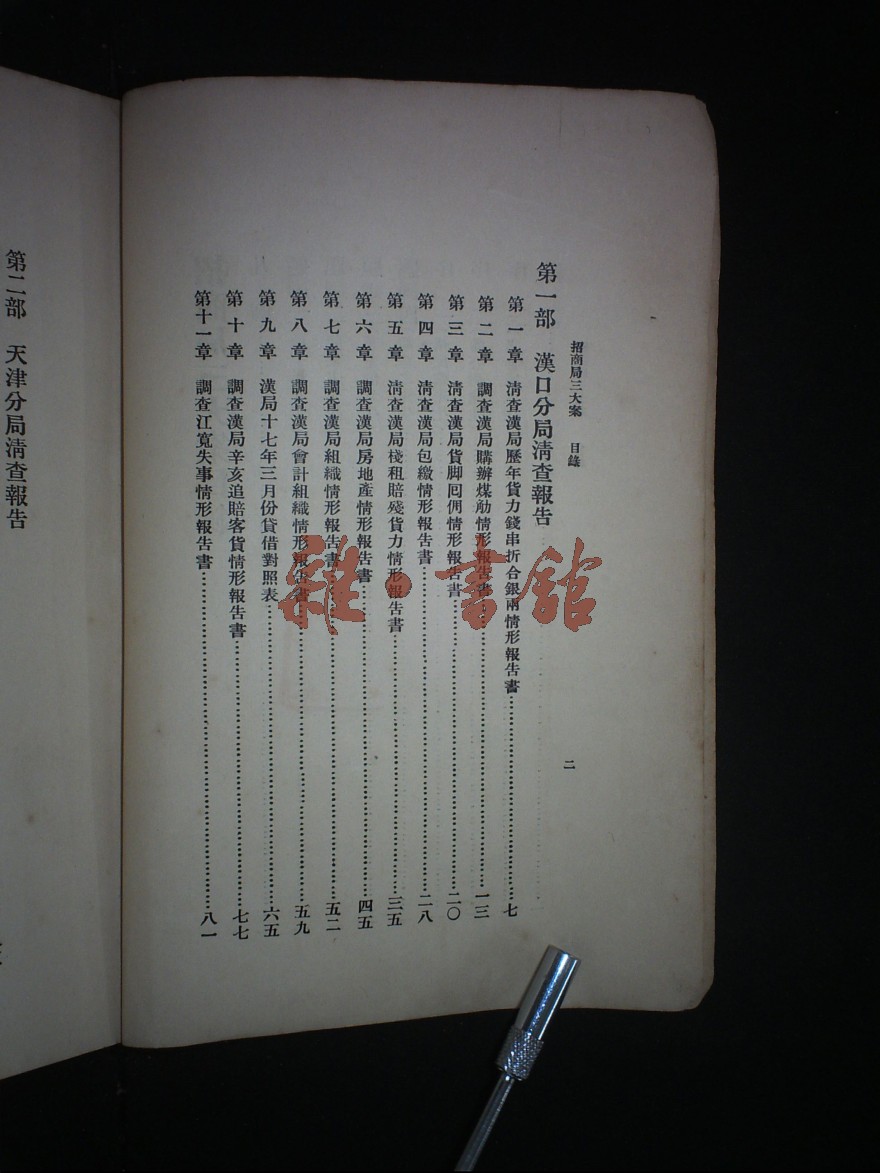 招商局三大案 目錄 二
第一部 漢口分局淸查報告
第一章 淸查漢局歷年貨力錢串折合銀兩情形報告書……七
第二章 調查漢局購辦煤觔情形報告書……一三
第三章 淸查漢局貨脚囘佣情形報告書……二〇
第四章 淸查漢局包繳情形報告書……二八
第五章 淸查漢局棧租賠殘貨力情形報告書……三五
第六章 調查漢局房地產情形報告書……四五
第七章 調查漢局組織情形報告書……五二
第八章 調查漢局會計組織情形報告書……五九
第九章 漢局十七年三月份貸借對照表……六五
第十章 調查漢局辛亥追賠客貨情形報告書……七七
第十一章 調查江寬失事情形報告書……八一
第二部 天津分局淸查報告
雜·書館